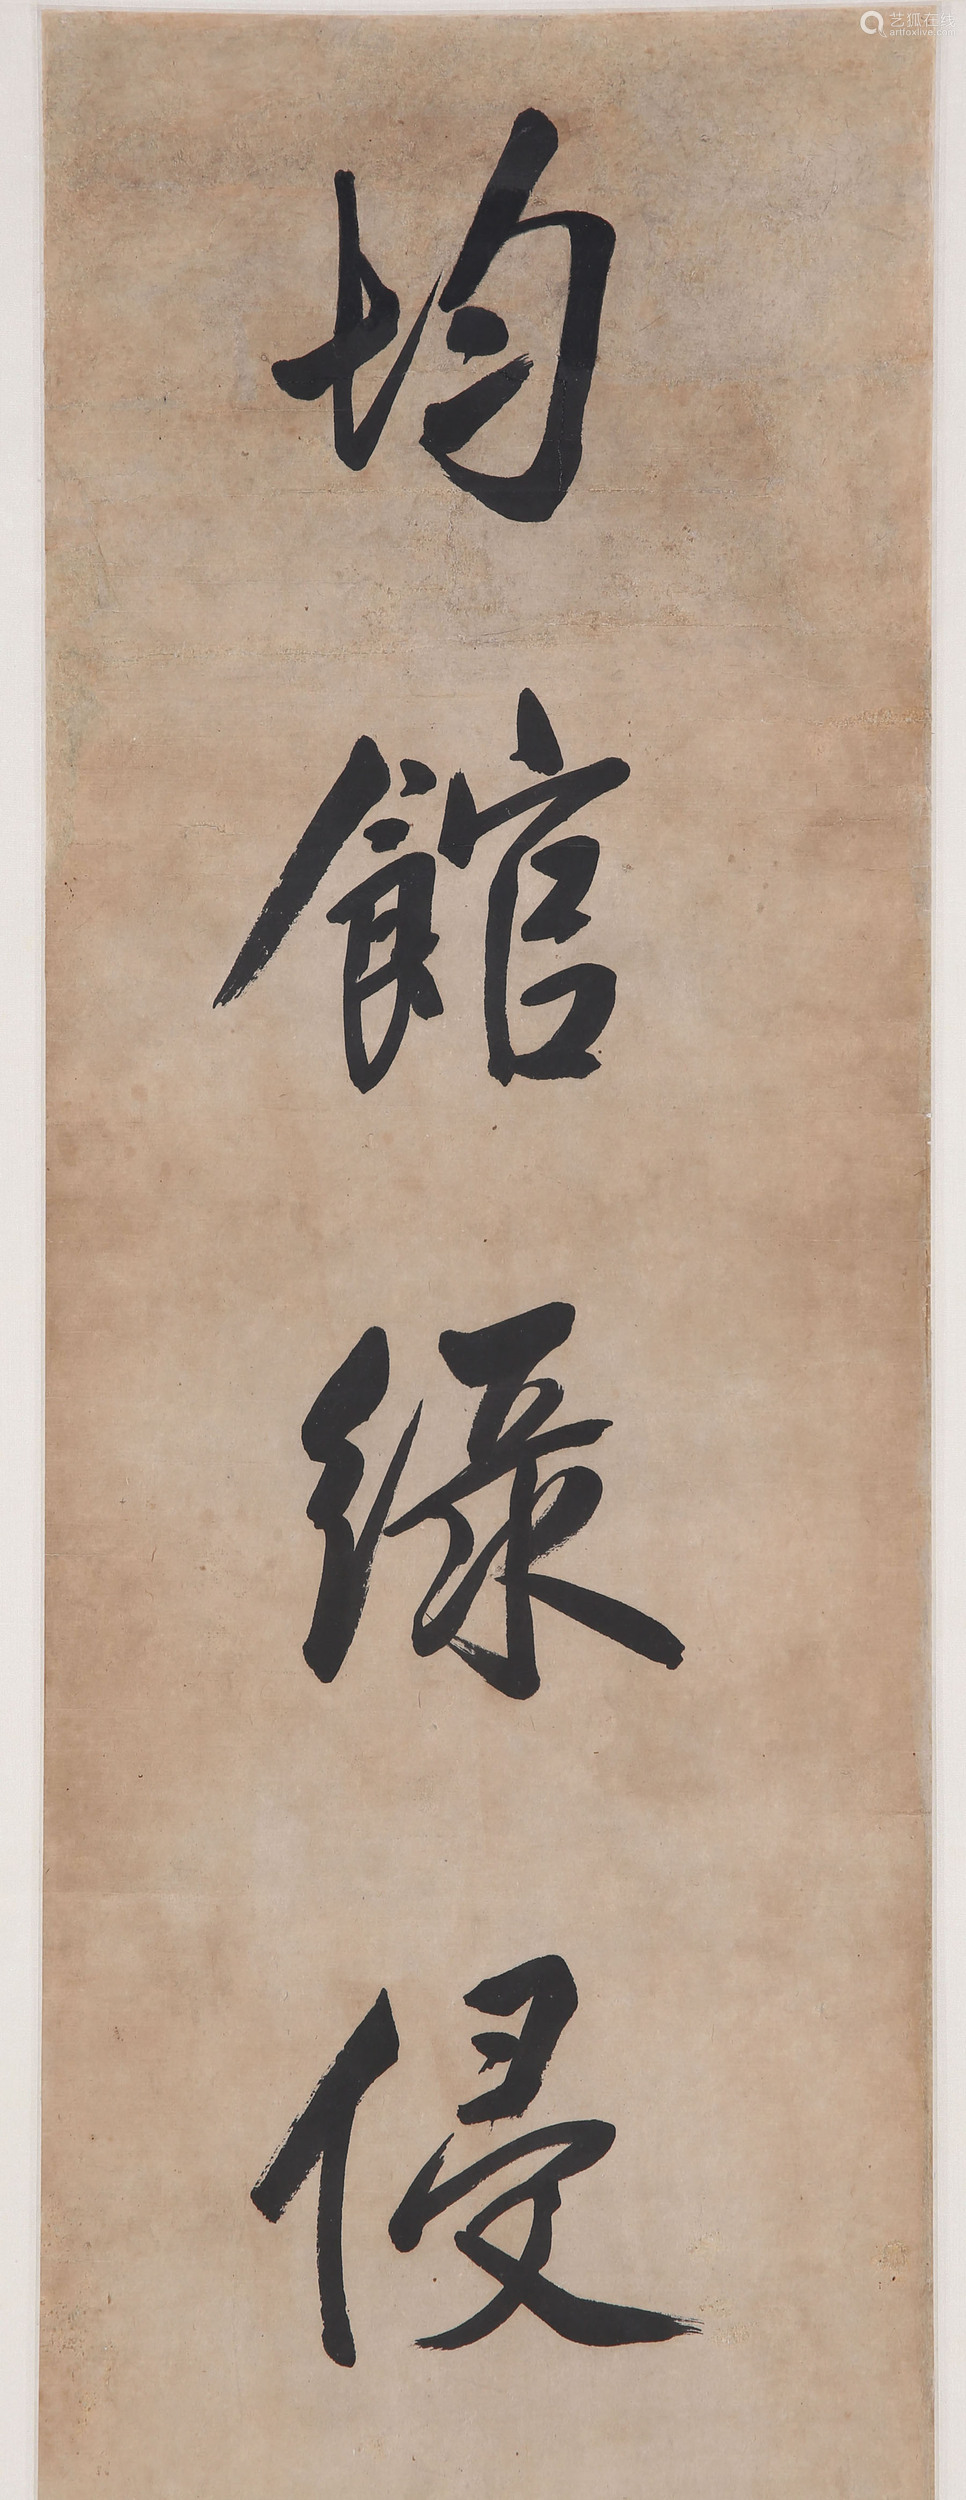 艺狐在线
artfoxlive.com
均館綠侵